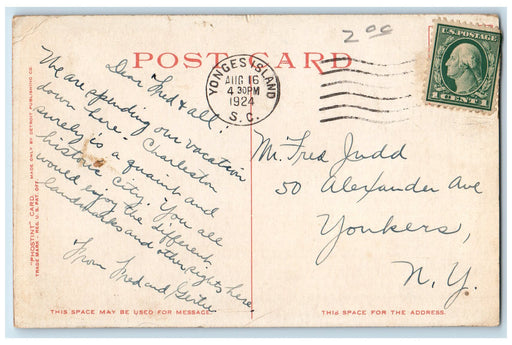 2.00
POST CARD
U.S. POSTAGE
1 CENT 1
YONGES ISLAND
AUG 16
4 30PM
1924
S.C.
Dear Fred & all:
We are spending our vacation
down here. Charleston
surely is a quaint and
historic city. You all
would enjoy the different
landmarks and other sights here.
From Fred and Gertie
Mr. Fred Judd
50 Alexander Ave
Yonkers,
N.Y.
"PHOSTINT" CARD MADE ONLY BY DETROIT PUBLISHING CO.
TRADE MARK - REG. U.S. PAT. OFF.
THIS SPACE MAY BE USED FOR MESSAGE.
THIS SPACE FOR THE ADDRESS.